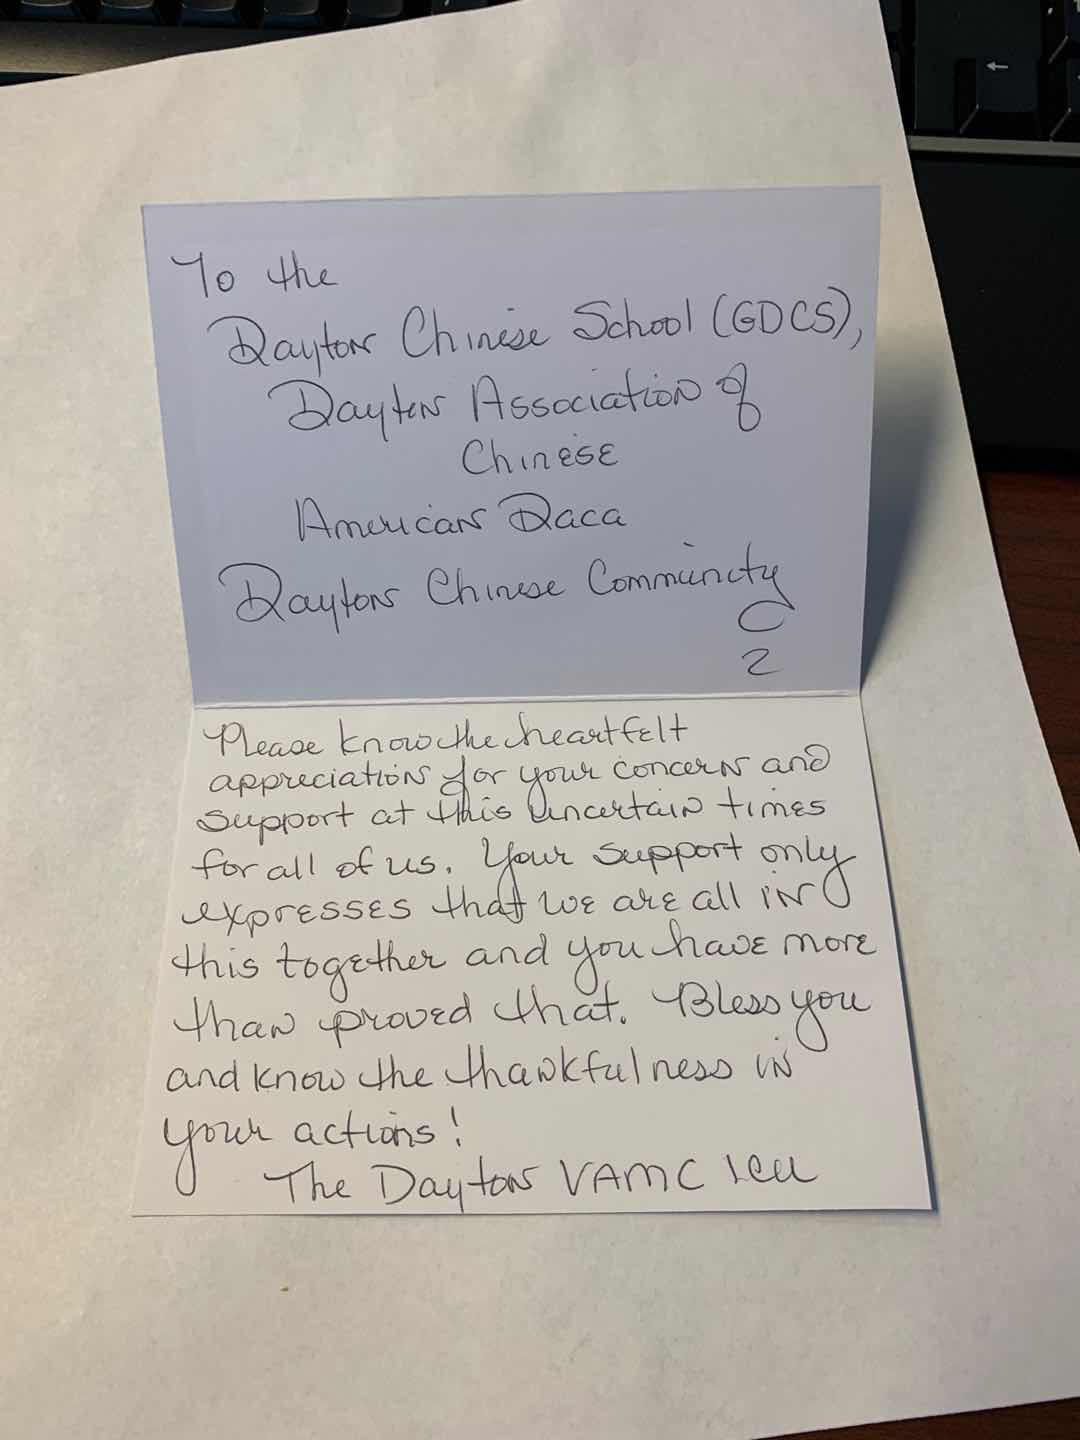 To the
Dayton Chinese School (GDCS),
Dayton Association of
Chinese
American Daca
Dayton Chinese Community
2
Please know the heartfelt
appreciation for your concern and
support at this uncertain times
for all of us. Your support only
expresses that we are all in
this together and you have more
than proved that. Bless you
and know the thankfulness in
your actions!
The Dayton VAMC ICU